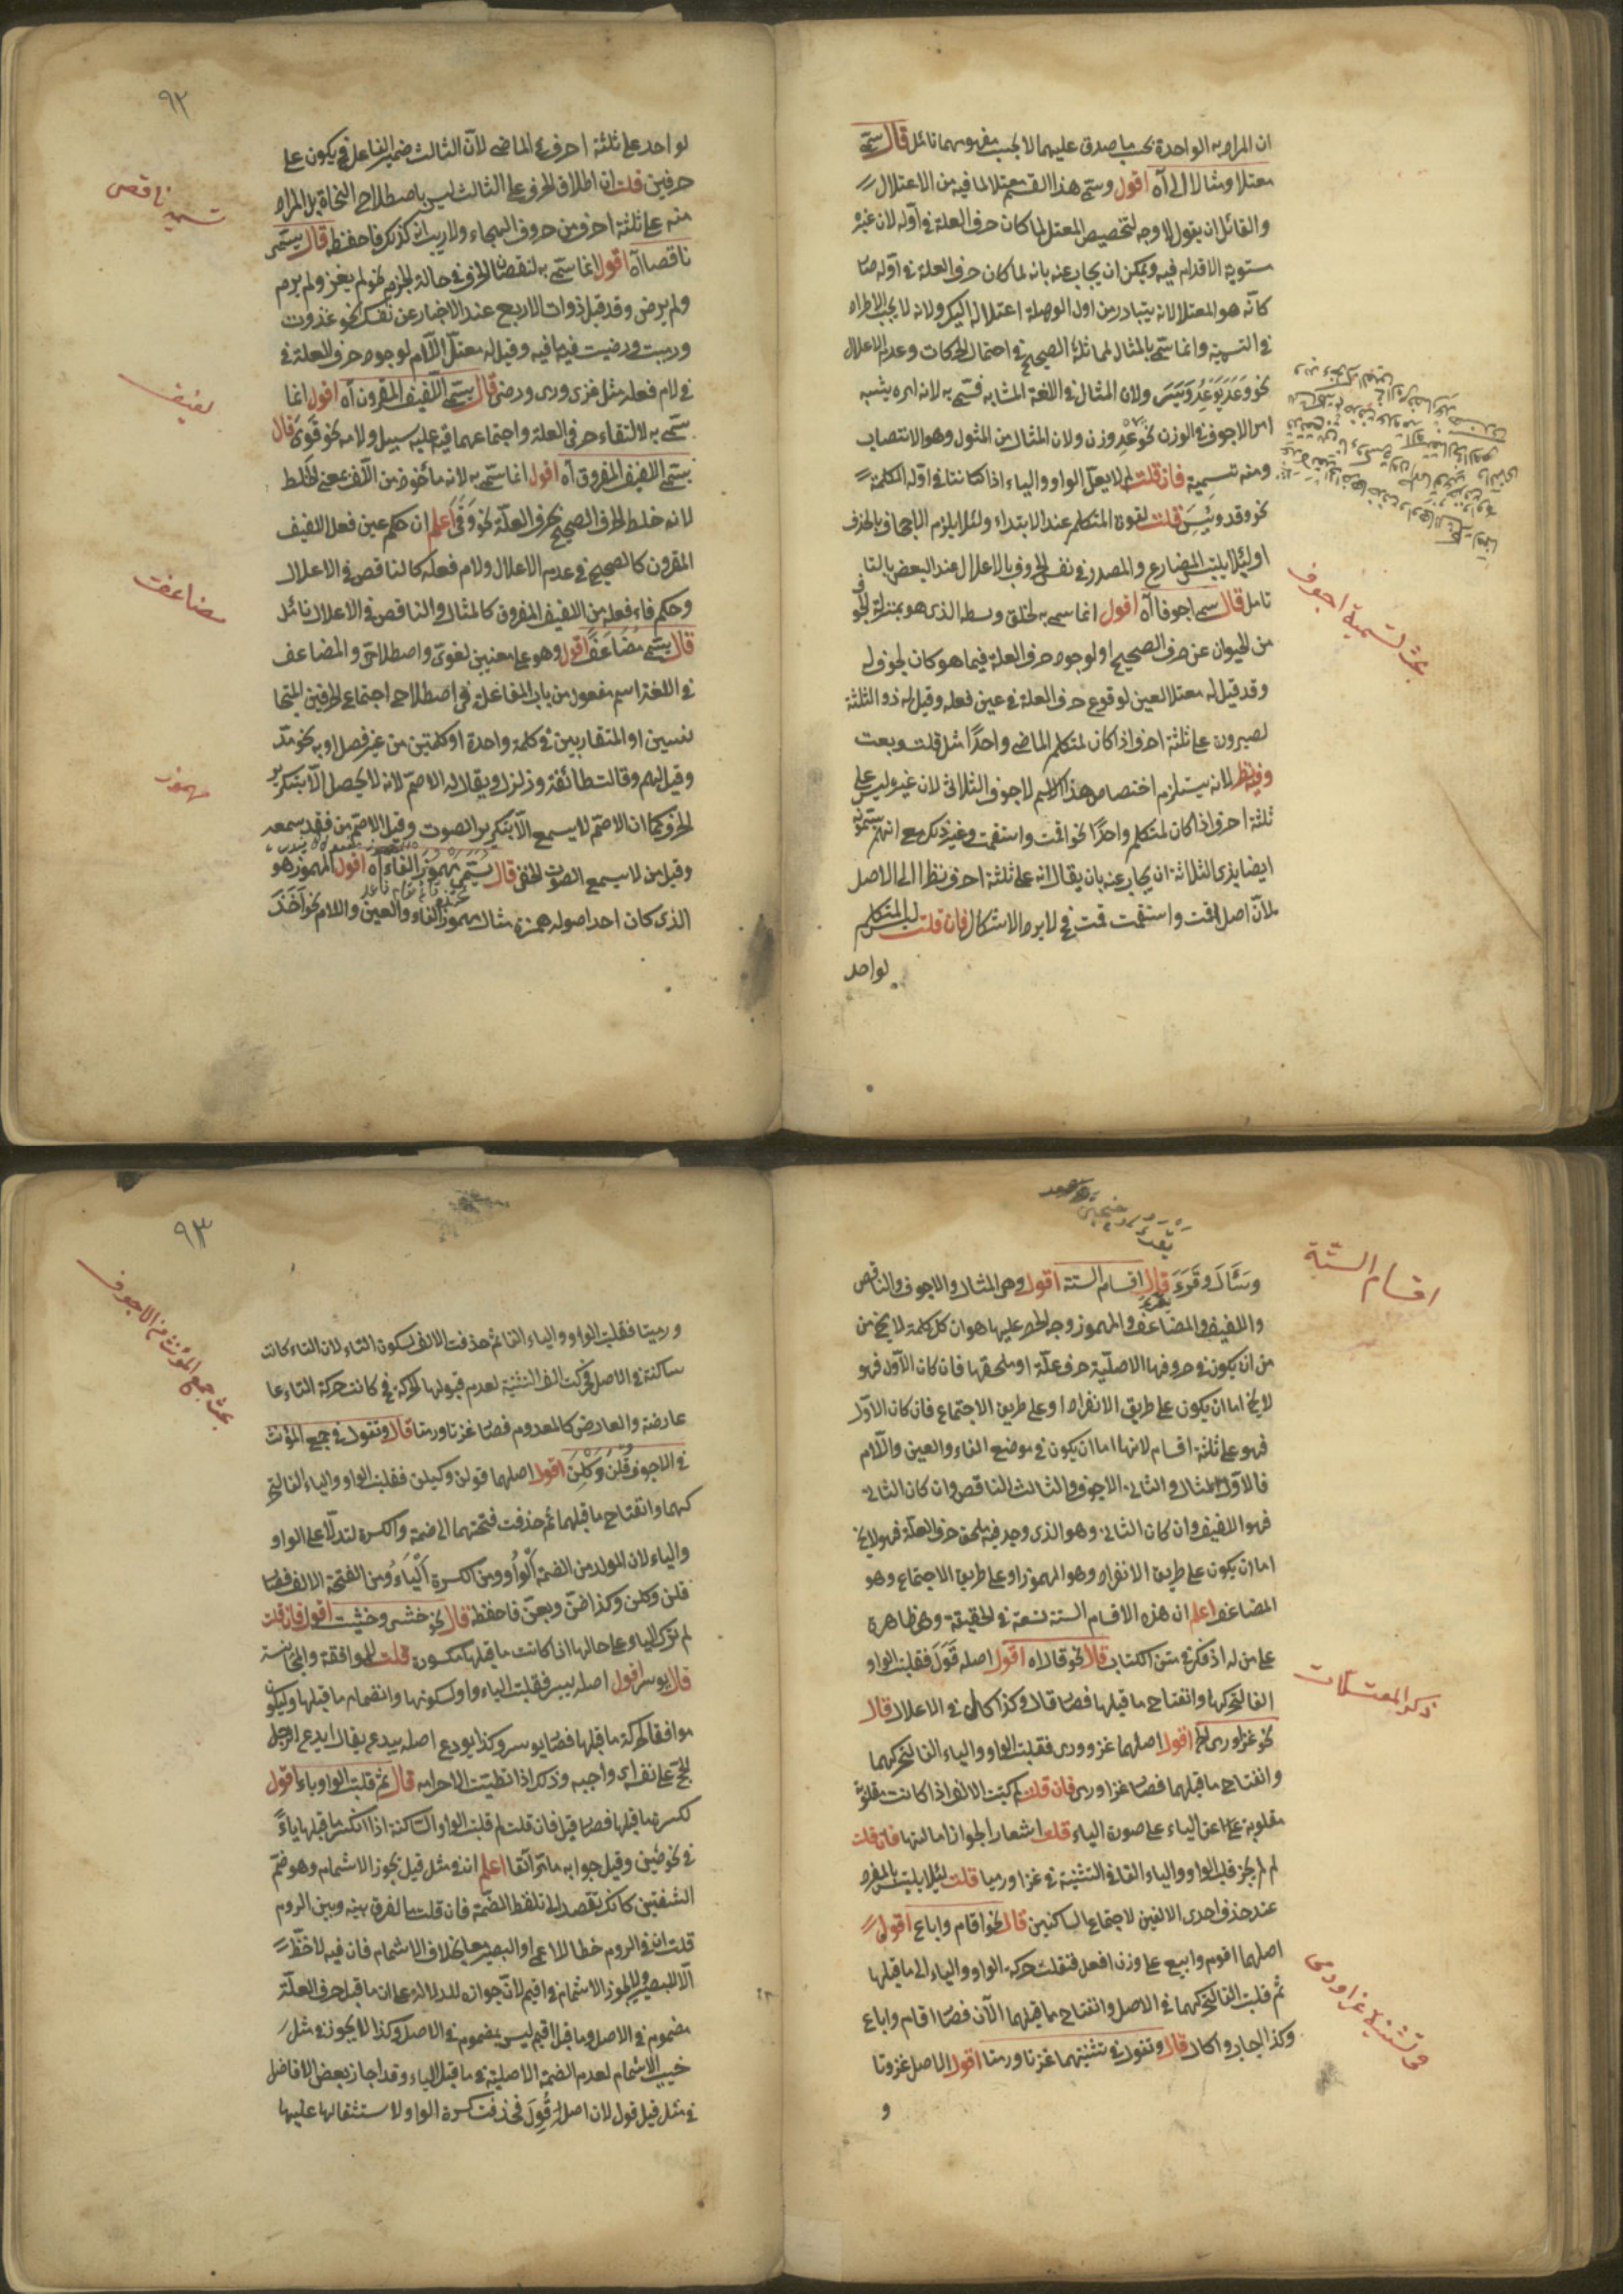 ان المراد به الواحدة بحسب ما صدق عليهما لا بحسب مفهومهما تأمل قال سمّي
معتلا ومثالا الى آه اقول وسمّي هذا القسم معتلا لما فيه من الاعتلال
والقائل ان يقول لا وجه لتخصيص المعتل لما كان حرف العلة في اوّله لان غيره
مستوية الاقدام فيه ويمكن ان يجاب عنه بانه لما كان حرف العلة في اوّله صار
كأنّه هو المعتل لانه يتبادر من اول الوصلة اعتلاله اليك ولانه لا يجب الاطراد
في التسمية وانما سمّي بالمثال لمماثلة الصحيح في احتمال الحركات وعدم الاعلال
نحو وَعَدَ يَوْعَدُ وَيَسَرَ ولان المثال في اللغة المشابه فسمّي به لانه امره يشبه
امر الاجوف في الوزن نحو عِد وزن ولان المثال من المثول وهو الانتصاب
ومنه تسمية فان قلت لم لا يعلّ الواو والياء اذا كانتا في اوّل الكلمة
نحو وقد ويَئِسَ قلت لقوة المتكلم عند الابتداء ولئلا يلزم الاجحاف بالحذف
او لئلا يلتبس المضارع والمصدر في نفس الحروف بالاعلال عند البعض بالتا
تامل قال سمي اجوفا آه اقول انما سمي به لخلق وسطه الذي هو بمنزلة الجوف
من الحيوان عن حرف الصحيح او لوجود حرف العلة فيما هو كان لجوف له
وقد قيل له معتل العين لوقوع حرف العلة في عين فعله وقيل له ذو الثلثة
لصيرورته على ثلثة احرف اذا كان لمتكلم الماضي واحدًا مثل قلت وبعت
وفيه نظر لانه يستلزم اختصاص هذا الاسم لاجوف الثلاثي لان غيره ليس على
ثلثة احرف اذا كان لمتكلم واحدًا نحو اقمت واستقمت وغير ذلك مع انهم يسمونه
ايضا بذي الثلاثة ان يجاب عنه بان يقال انه على ثلثة احرف نظرا الى الاصل
لان اصل اقمت واستقمت قمت فح لا يرد الاشكال فان قلت ليس المتكلم
لواحد
بحث تسمية اجوف
٩٢
لواحد على ثلثة احرف في الماضي لان الثالث ضمير الفاعل فح يكون على
حرفين قلت ان اطلاق الحرف على الثالث ليس باصطلاح النحاة بل المراد
منه على ثلثة احرف من حروف الهجاء ولا ريب انه كذلك فاحفظه قال يسمّى
ناقصا آه اقول انما سمّي به لنقصان الحرف في حالة الجزم نحو لم يغز ولم يرم
ولم يرض وقد قيل ذوات الاربع عند الاخبار عن نفسك نحو غذوت
ورميت ورضيت فيها فيه وقيل له معتلّ اللام لوجود حرف العلة في
في لام فعله مثل غزى ورمى ورضى قال يسمّى اللفيف المقرون آه اقول انما
سمّي به لالتقاء حرفي العلة واجتماعهما فيه عليه سبيل ولامه نحو قَوِيَ قال
يسمّى اللفيف المفروق آه اقول انما سمّي به لانه مأخوذ من اللّف بمعنى الخلط
لانه خلط الحرف الصحيح بحرف العلة نحو وَقَى اعلم ان حكم عين فعل اللفيف
المقرون كالصحيح في عدم الاعلال ولام فعله كالناقص في الاعلال
وحكم فاء فعله من اللفيف المفروق كالمثال والناقص في الاعلال تأمل
قال يسمّى مُضَاعَفًا اقول وهو على معنيين لغويّ واصطلاحيّ والمضاعف
في اللغة اسم مفعول من باب المفاعلة وفي اصطلاحي اجتماع الحرفين المتجا
نسين او المتقاربين في كلمة واحدة او كلمتين من غير فصل او به نحو مدّ
وقيل لهم وقالت طائفة وزلزل ويقال له الاصمّ لانه لا يحصل الّا بتكرير
الحرف كما ان الاصمّ لا يسمع الّا بتكرير الصوت وقيل الاصمّ من فقد سمعه
وقيل من لا يسمع الصوت الخفي قال يسمّى مهموز الفاء آه اقول المهموز هو
الذي كان احد اصوله همزة مثال مهموز الفاء والعين واللام نحو اَخَذَ
تسمية ناقص
لفيف
مضاعف
مهموز
وسَئَالَ وقَرَءَ قال اقسام الستة اقول وهي المثال والاجوف والناقص
واللفيف والمضاعف والمهموز وجه الحصر عليها هو ان كل كلمة لا يخ من
من ان يكون في حروفها الاصلية حرف علّة او ملحقها فان كان الاوّل فهو
لا يخ اما ان يكون على طريق الانفراد او على طريق الاجتماع فان كان الاوّل
فهو على ثلثة اقسام لانها اما ان يكون في موضع الفاء والعين واللّام
فالاوّل المثال والثاني الاجوف والثالث الناقص وان كان الثاني
فهو اللفيف وان كان الثاني وهو الذي وجد فيه ملحق حرف العلّة فهو لا يخ
اما ان يكون على طريق الانفراد وهو المهموز او على طريق الاجتماع وهو
المضاعف اعلم ان هذه الاقسام الستة تسعة في الحقيقة وهي ظاهرة
على من له اذ فكر في متن الكتاب قال نحو قالا آه اقول اصله قَوَلَ فقلبت الواو
الفا لتحركها وانفتاح ما قبلها فصار قالا وكذا كال في الاعلال قال
نحو غزا ورمى الخ اقول اصلهما غزو ورمى فقلبت الواو والياء الفا لتحركهما
وانفتاح ما قبلهما فصار غزا ورمى فان قلت لم كتبت الالف اذا كانت مقلوبة
مقلوبة عن الياء على صورة الياء قلت اشعارا لجواز امالتها فان قلت
لم لم يجز قلب الواو والياء الفا في التثنية في غزا ورميا قلت لئلا يلتبس بالمفرد
عند حذف احدى الالفين لاجتماع الساكنين قال نحو اقام واباع اقول
اصلهما اقوم وابيع على وزن افعل فنقلت حركة الواو والياء الى ما قبلها
ثم قلبت الفا لتحركهما في الاصل وانفتاح ما قبلهما الآن فصار اقام واباع
وكذا اجار واكال قال وتقول في تثنيتهما غزتا ورمتا اقول الاصل غزوتا
و
اقسام الستّة
ذكر المعتلات
في تثنية غزا ورمى
٩٣
ورميتا فقلبت الواو والياء الفا ثم حذفت الالف لسكون التاء لان التاء كانت
ساكنة في الاصل فحركت الف التثنية لعدم قبولها الحركة فح كانت حركة التاء عا
عارضة والعارض كالمعدوم فصار غزتا ورمتا قال وتقول في جمع المؤنث
في الاجوف قُلْنَ وَكِلْنَ اقول اصلهما قولن وكيلن فقلبت الواو والياء الفا لتحر
كهما وانفتاح ما قبلهما ثم حذفت فتحتهما الى ضمة والكسرة لتدلّا على الواو
والياء لان المولد من الضمة اَلْوَاو ومن الكسرة اَلْيَاء ومن الفتحة الالف فصار
قلن وكلن وكذا صن وبعن فاحفظه قال نحو خشى وخشيت اقول فان قلت
لم ترك الياء على حالها اذا كانت ما قبلها مكسورة قلت للموافقة والمجانسة
قال يوسر اقول اصله ييسر فقلبت الياء واوا لسكونها وانضمام ما قبلها وليكون
موافقا لحركة ما قبلها فصار يوسر وكذا يودع اصله ييدع يقال ايدع الرجل
الحج على نفسه اي واجبه وذلك اذا تطيّب لاحرامه قال ثم قلبت الواو ياء اقول
لكسر ما قبلها فصار قيل فان قلت لم قلبت الواو الساكنة اذا انكسر ما قبلها ياءً
وقيل جوابه ما مرّ آنفا اعلم انه في مثل قيل يجوز الاشمام وهو ضمّ
الشفتين كانك تقصد الى تلفظ الضمّة فان قلت ما الفرق بينه وبين الروم
قلت ان في الروم حظا للاعمى او البصير معا بخلاف الاشمام فان فيه لا حظّ
الّا للبصير ولا يجوز الاشمام في اقيم لانّ جوازه للدلالة على ان ما قبل حرف العلّة
مضموم في الاصل وما قبل اقيم ليس بمضموم في الاصل وكذا لا يجوز في مثل
خيب الاشمام لعدم الضمة الاصلية في ما قبل الياء وقد اجاز بعض الافاضل
في مثل قيل قول لان اصله قُوِلَ فحذفت كسرة الواو لاستثقالها عليها
بحث جمع المؤنث من الاجوف